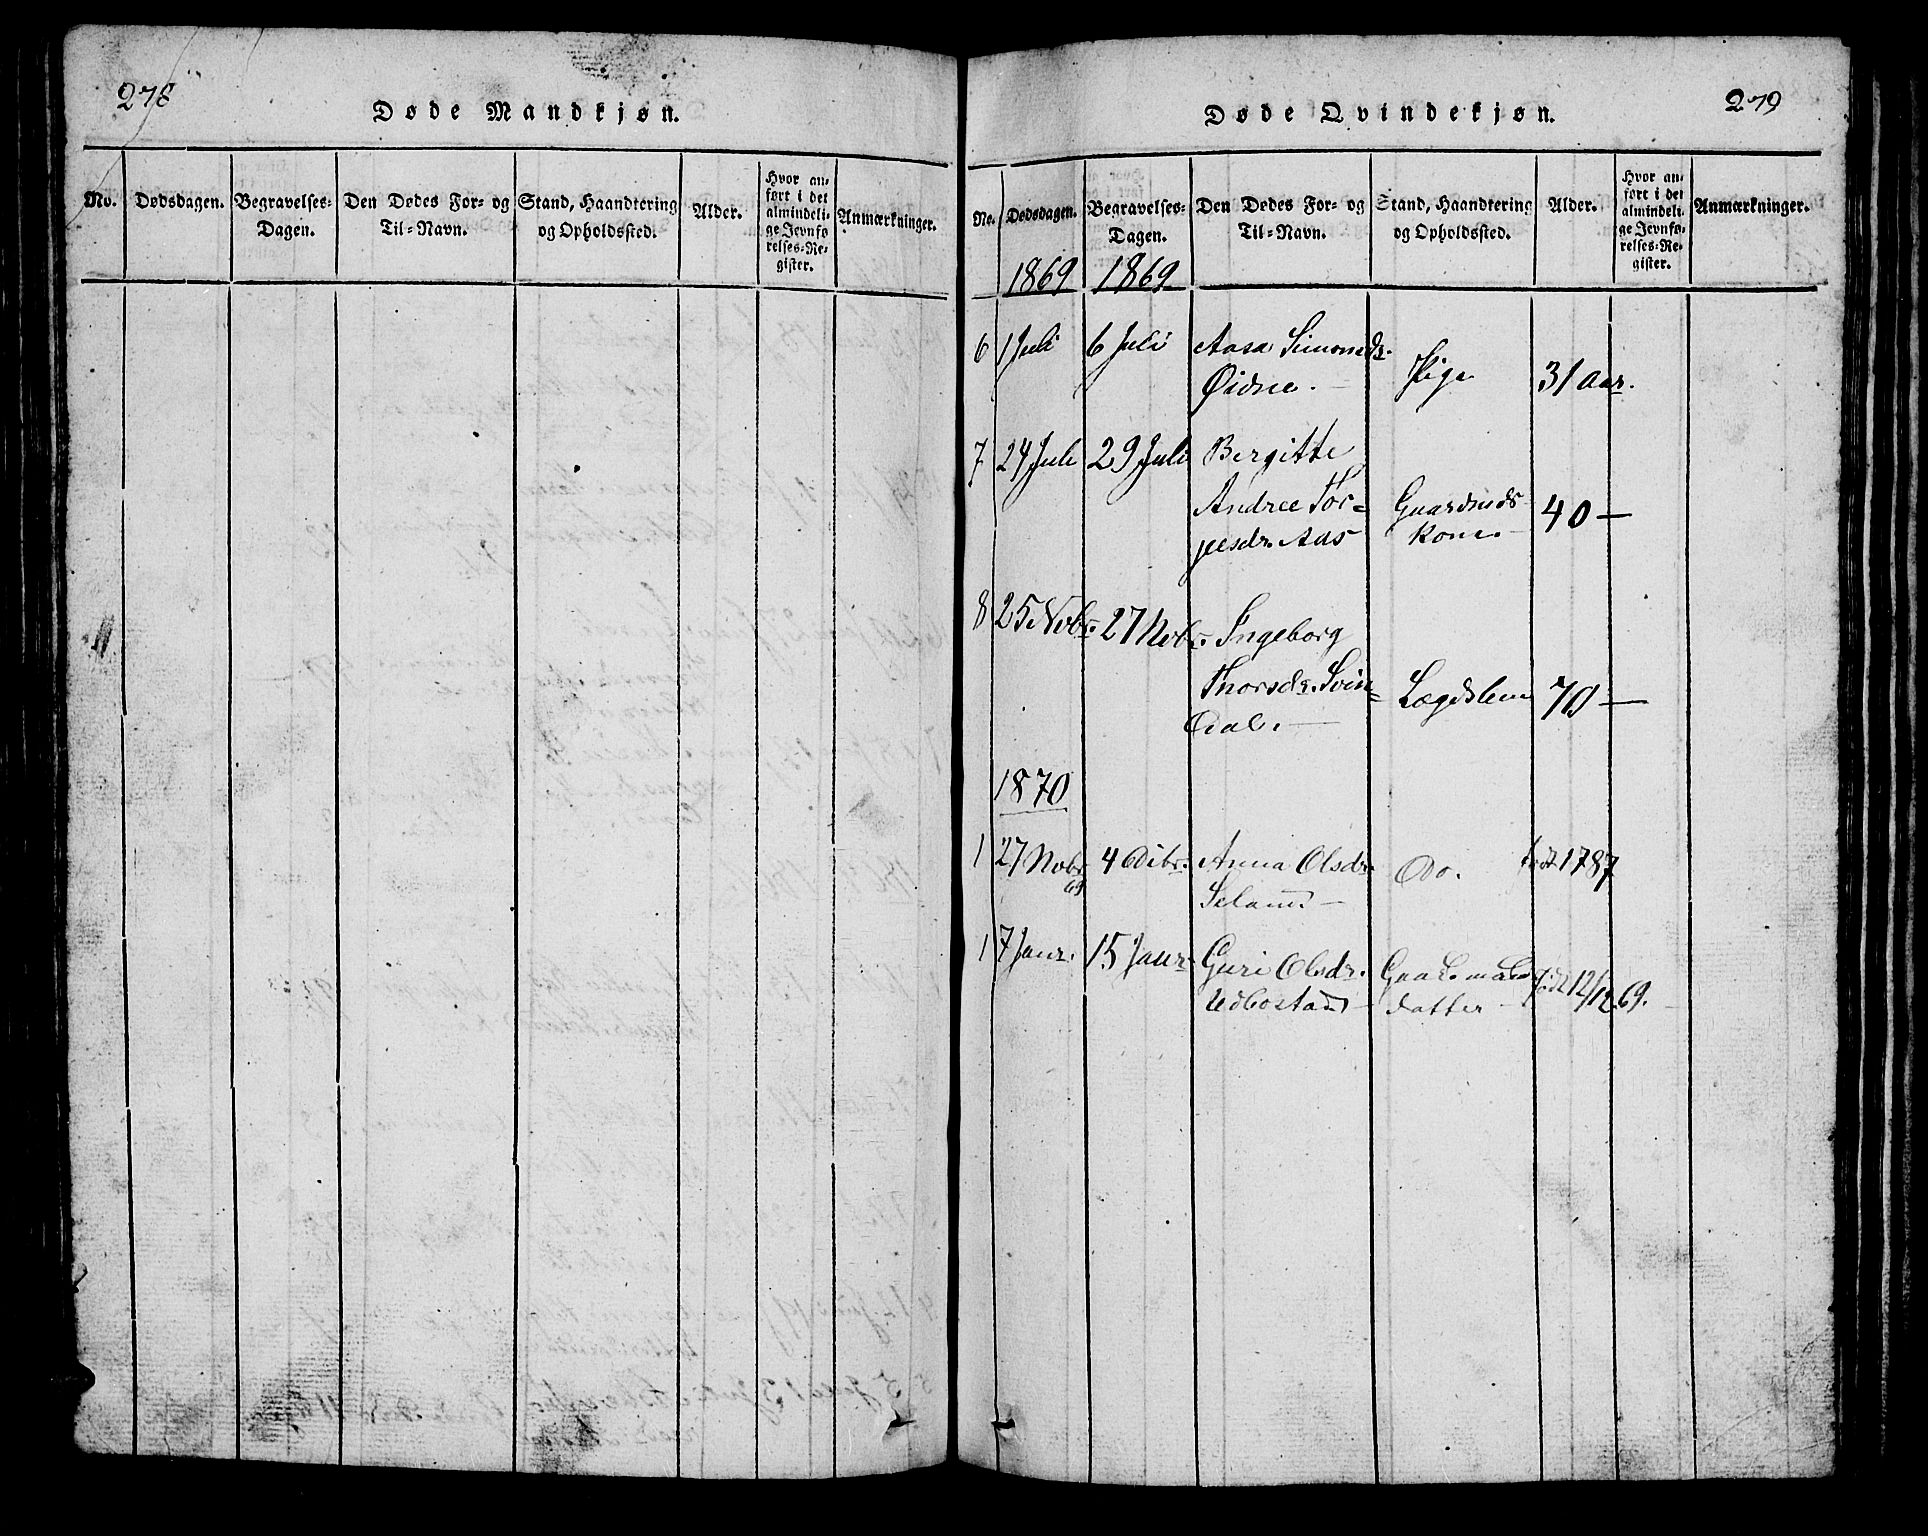 278
Døde Mandkjøn.
No.
Dødsdagen.
Begravelses-
Dagen.
Den Dødes For- og
Til-Navn.
Stand, Haandtering
og Opholdssted.
Alder.
Hvor an-
ført i det
almindeli-
ge Jevnfø-
relses-Re-
gister.
Anmærkninger.
279
Døde Qvindekjøn.
No.
Dødsdagen.
Begravelses-
Dagen.
Den Dødes For- og
Til-Navn.
Stand, Haandtering
og Opholdssted.
Alder.
Hvor an-
ført i det
almindeli-
ge Jevnfø-
relses-Re-
gister.
Anmærkninger.
1869 1869
6 1 Juli 6 Juli Aasa Simonsdr.
Øidne. Pige 31 Aar.
7 24 Juli 29 Juli Bergitte
Andree Tor=
jusdr. Aas Gaardmds
Kone. 40 —
8 25 Nobr. 27 Nobr. Ingeborg
Thorsdr. Svin=
dal. Lægdslem 70 —
1870
1 27 Nobr. 69 4 Debr. Anna Olsdr.
Seland Do. født 1787
1 7 Janr. 15 Janr. Guri Olsdr.
Udbostad
datter født 12/12 69.